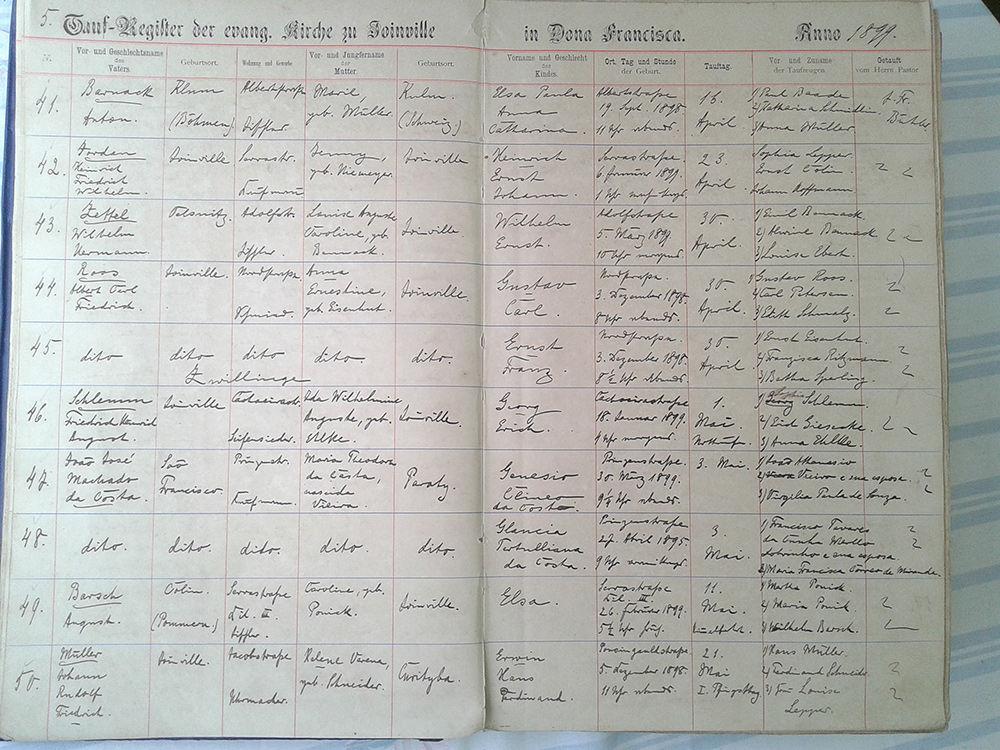 5. Tauf-Register der evang. Kirche zu Joinville in Dona Francisca. Anno 1899.
Nr. Vor- und Geschlechtsname des Vaters. Geburtsort. Wohnung und Gewerbe Vor- und Jungfername der Mutter. Geburtsort. Vorname und Geschlecht des Kindes. Ort, Tag und Stunde der Geburt. Tauftag. Vor und Zuname der Taufzeugen. Getauft vom Herrn Pastor
41. Barnack Klum Albertstrasse Marie Kulm Elsa Paula Albertstrasse 16. 1) Paul Baade
Anton. (Böhmen) geb. Müller. (Schweiz.) Anna 19. Sept. 1898. April. 2) Katharina
Catharina. 11 Uhr abends. 3) Anna Müller
42. Jordan Joinville Jenny, Joinville Heinrich 23. Sophie Lepper.
Heinrich geb. Niemeyer. Ernst 1899. April. Ernst Colin.
Friedrich Johann. Johann Hoffmann
Wilhelm.
43. Zettel Adolfstr. Louise Auguste Joinville. Wilhelm Adolfstrasse 30. 1) Emil Bannack.
Wilhelm Caroline, geb. Ernst. 5. März 1899 April. 2) Bannack
Hermann. Bannack. 10 Uhr 3) Louise Ebert.
44. Roos Joinville. Nordstrasse Anna Joinville. Gustav Nordstrasse. 30. 1) Gustav Roos.
Albert Carl Ernestine, Carl. 3. Dezember 1898. April. 2) Carl Petersen.
Friedrich. geb. Eisenhut. 8 Uhr abends. 3) Schmalz.
45. dito dito dito dito. dito. Ernst Nordstrasse 30. 1) Ernst Eisenhut.
Zwillinge Franz. 3. Dezember 1898. April 2) Francisca Ritzmann
8 ½ Uhr abends. 3) Bertha Sperling.
46. Schlemm Joinville Ida Wilhelmine Joinville. Georg 1. 1) Schlemm.
Friedrich Heinrich Auguste, geb. Erich. 18. Januar 1899. Mai. 2)
August. 4 Uhr Nottaufe. 3) Anna
47. João José São Prinzenstr. Maria Theodora Paraty. Genesio Prinzenstrasse. 3. Mai. 1) João Athanasio
Machado Francisco. da Costa, 30. März 1899. 2) Vieira e sua esposa.
da Costa. nascida da Costa 9 ¼ Uhr abends. 3) Virgilia Paula de Souza.
Vieira
48. dito. dito. dito. dito. dito. Prinzenstrasse 3. 1) Francisco Tavares
Tertulliana 27. April 1895. Mai. da Cunha Mello
da Costa. 9 Uhr Sobrinho e sua esposa
2) Maria Francisca Correa de Miranda.
49. Barsch Cölin. Serrastrasse Caroline, geb. Joinville. Elsa. Serrastrasse 11. 1) Martha Ponick.
August. (Pommern.) Ponick. 26. Februar 1899. Mai. 2) Maria Ponick.
5 ½ Uhr früh. 3) Wilhelm Barsch.
50. Müller Joinville. Jacobstrasse Helene Verena, Curityba. Erwin 21. 1) Hans Müller.
Johann geb. Schneider. Hans 5. Dezember 1898. Mai 2) Ferdinand Schneider
Rudolf Uhrmacher. Ferdinand. 11 Uhr abends. I. Pfingsttag. 3) Frau Louise
Friedrich. Lepper.